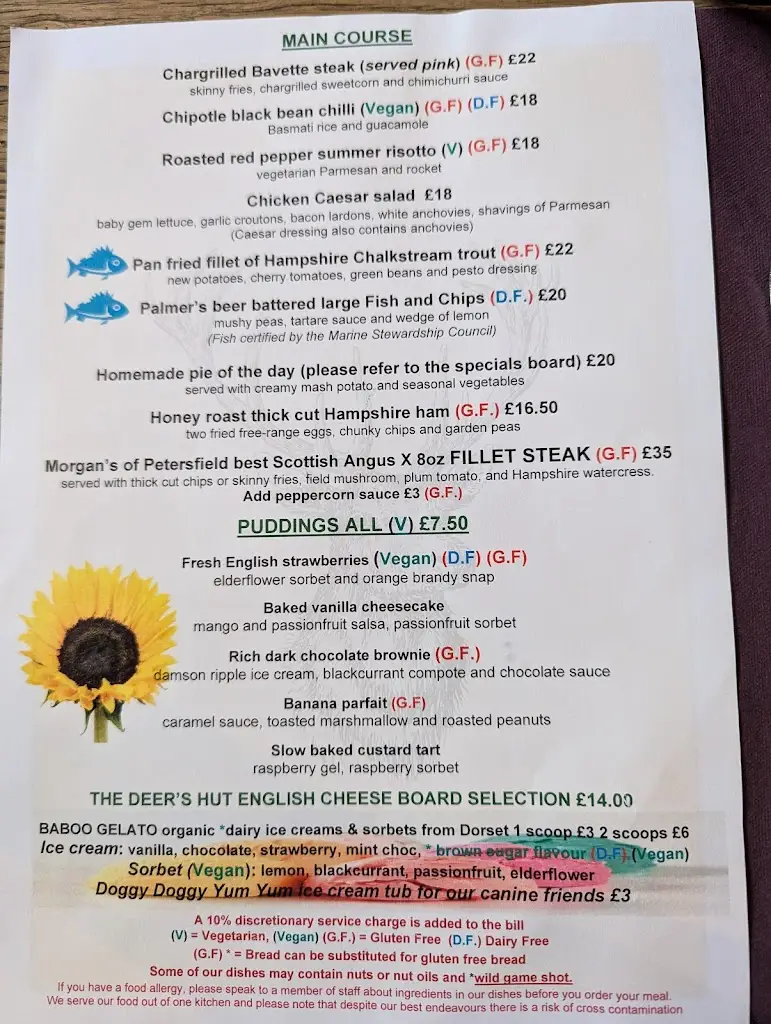 MAIN COURSE
Chargrilled Bavette steak (served pink) (G.F) £22
skinny fries, chargrilled sweetcorn and chimichurri sauce
Chipotle black bean chilli (Vegan) (G.F) (D.F) £18
Basmati rice and guacamole
Roasted red pepper summer risotto (V) (G.F) £18
vegetarian Parmesan and rocket
Chicken Caesar salad £18
baby gem lettuce, garlic croutons, bacon lardons, white anchovies, shavings of Parmesan
(Caesar dressing also contains anchovies)
Pan fried fillet of Hampshire Chalkstream trout (G.F) £22
new potatoes, cherry tomatoes, green beans and pesto dressing
Palmer's beer battered large Fish and Chips (D.F.) £20
mushy peas, tartare sauce and wedge of lemon
(Fish certified by the Marine Stewardship Council)
Homemade pie of the day (please refer to the specials board) £20
served with creamy mash potato and seasonal vegetables
Honey roast thick cut Hampshire ham (G.F.) £16.50
two fried free-range eggs, chunky chips and garden peas
Morgan's of Petersfield best Scottish Angus X 8oz FILLET STEAK (G.F) £35
served with thick cut chips or skinny fries, field mushroom, plum tomato, and Hampshire watercress.
Add peppercorn sauce £3 (G.F.)
PUDDINGS ALL (V) £7.50
Fresh English strawberries (Vegan) (D.F) (G.F)
elderflower sorbet and orange brandy snap
Baked vanilla cheesecake
mango and passionfruit salsa, passionfruit sorbet
Rich dark chocolate brownie (G.F.)
damson ripple ice cream, blackcurrant compote and chocolate sauce
Banana parfait (G.F)
caramel sauce, toasted marshmallow and roasted peanuts
Slow baked custard tart
raspberry gel, raspberry sorbet
THE DEER'S HUT ENGLISH CHEESE BOARD SELECTION £14.00
BABOO GELATO organic *dairy ice creams & sorbets from Dorset 1 scoop £3 2 scoops £6
Ice cream: vanilla, chocolate, strawberry, mint choc, * brown sugar flavour (D.F) (Vegan)
Sorbet (Vegan): lemon, blackcurrant, passionfruit, elderflower
Doggy Doggy Yum Yum Ice cream tub for our canine friends £3
A 10% discretionary service charge is added to the bill
(V) = Vegetarian, (Vegan) (G.F.) = Gluten Free (D.F.) Dairy Free
(G.F) * = Bread can be substituted for gluten free bread
Some of our dishes may contain nuts or nut oils and *wild game shot.
If you have a food allergy, please speak to a member of staff about ingredients in our dishes before you order your meal.
We serve our food out of one kitchen and please note that despite our best endeavours there is a risk of cross contamination